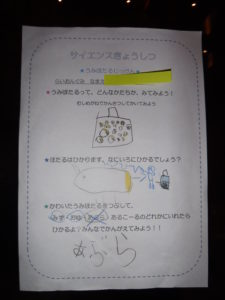 サイエンスきょうしつ
★うみほたるじっけん★
らいおんぐみ なまえ
★うみほたるって、どんなかたちか、みてみよう！
むしめがねでかんさつしてかいてみよう
★ほたるはひかります、なにいろにひかるでしょう？
★かわいたうみほたるをつぶして、
みず・おゆ・あぶら・あるこーるのどれかにいれたら
ひかるよ？みんなでかんがえてみよう！！
あぶら